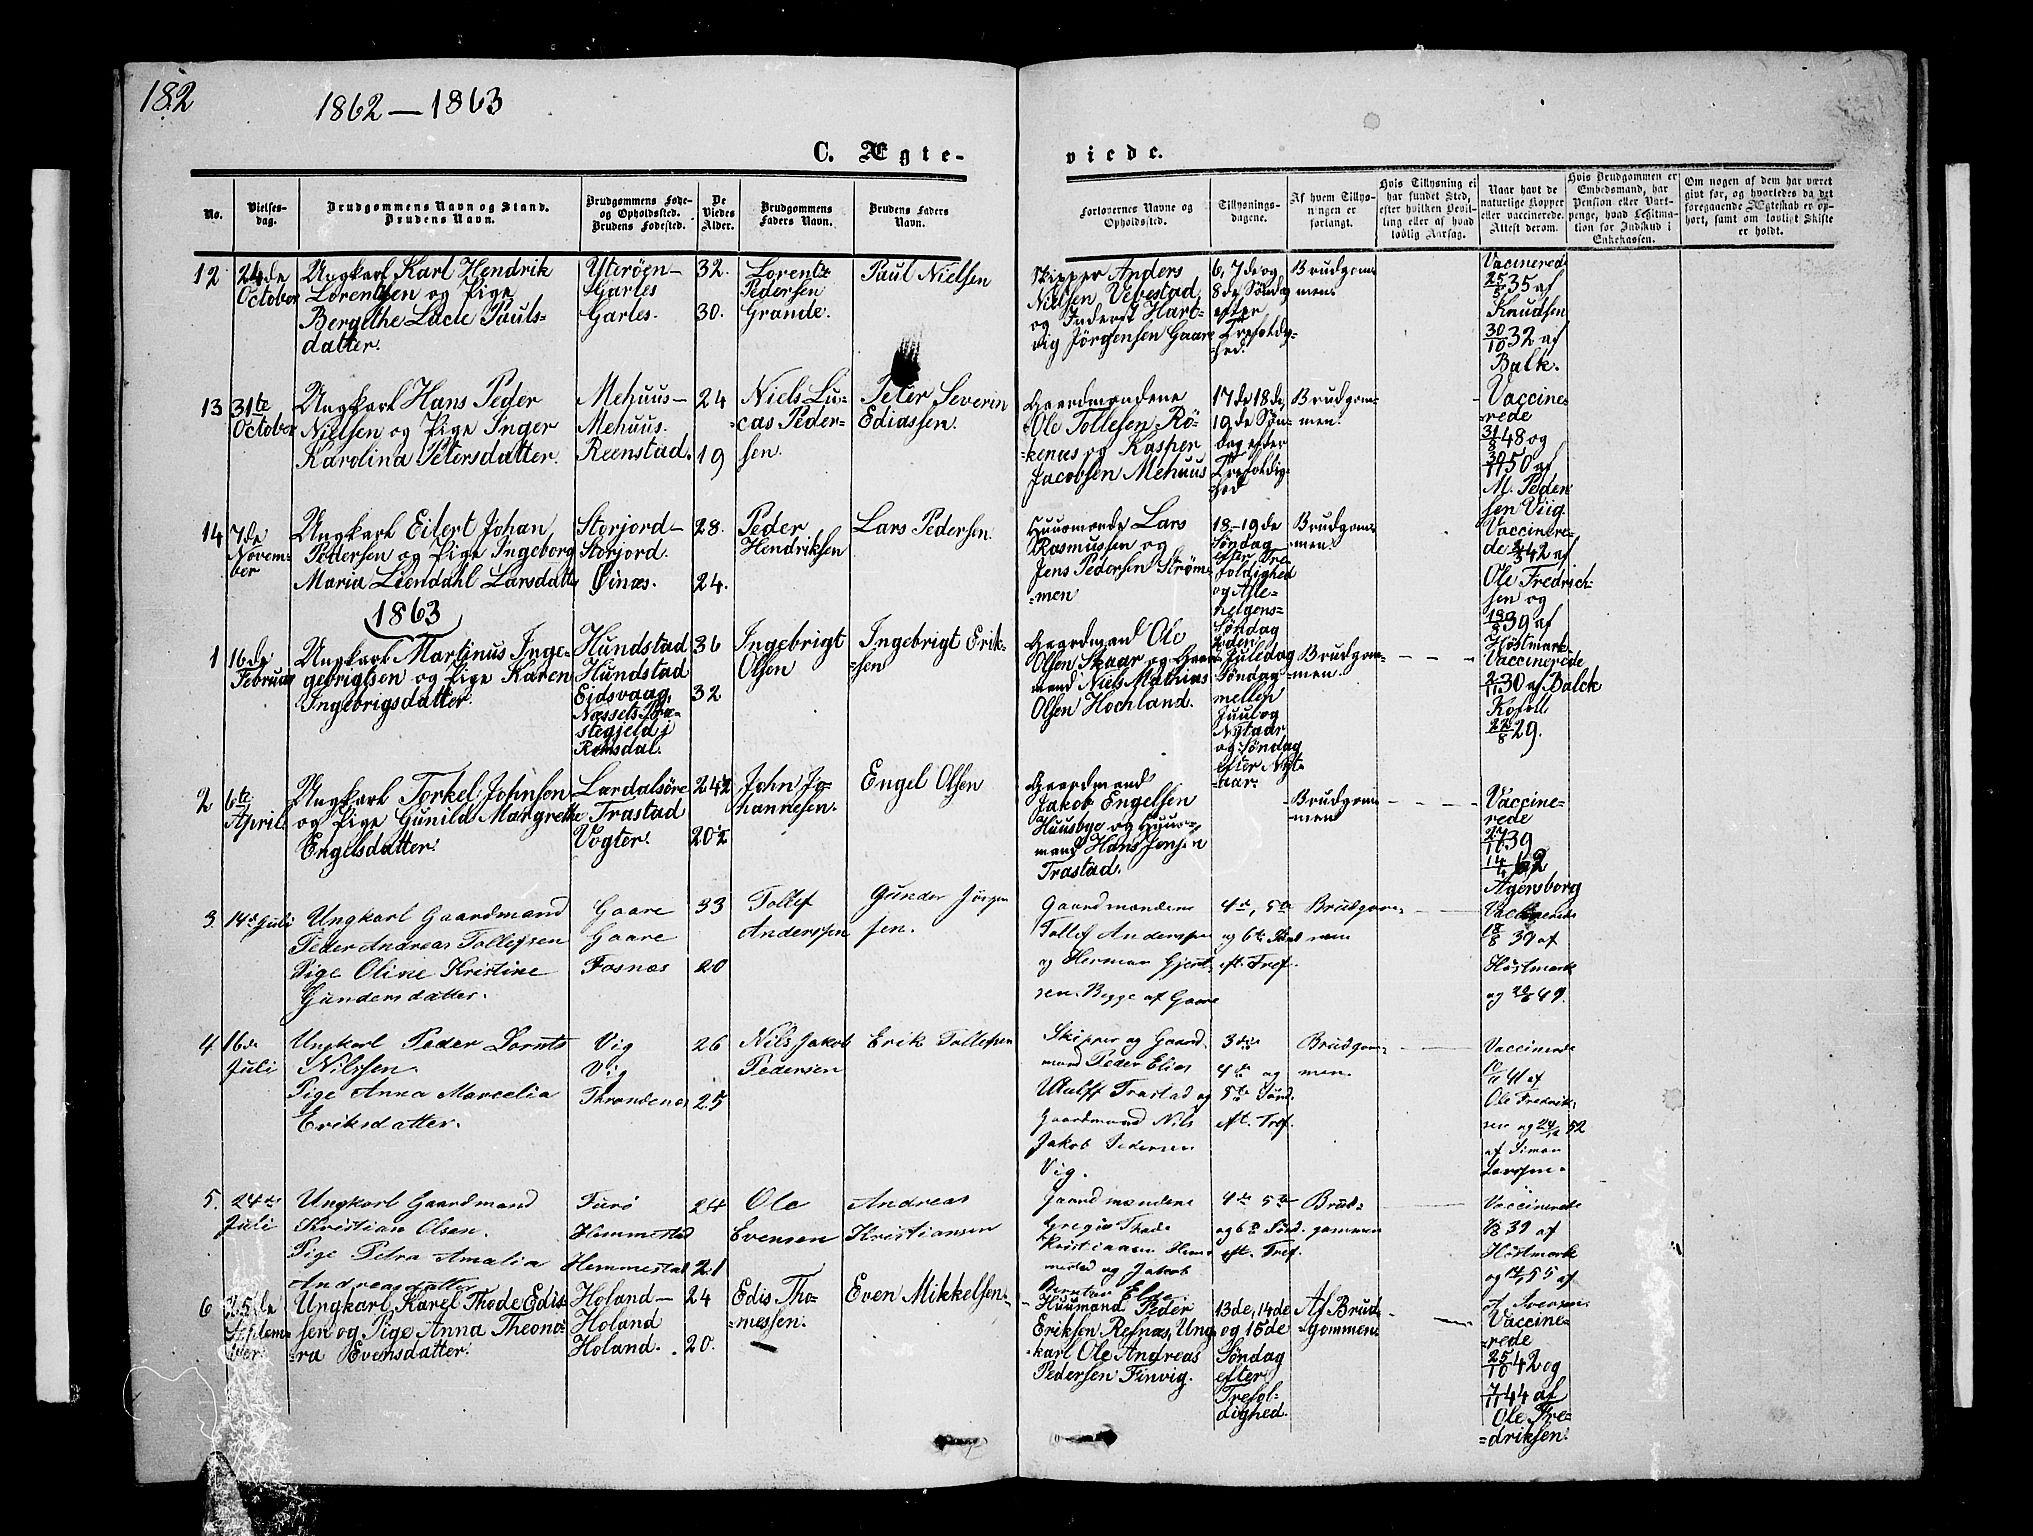 182
1862 — 1863
C. Ægte-
viede.
No.
Vielses-
dag.
Brudgommens Navn og Stand.
Brudens Navn.
Brudgommens Føde-
og Opholdssted.
Brudens Fødested.
De
Viedes
Alder.
Brudgommens
Faders Navn.
Brudens Faders
Navn.
Forlovernes Navne og
Opholdssted.
Tillysnings-
dagene.
Af hvem Tillys-
ningen er
forlangt.
Hvis Tillysning ei
har fundet Sted,
efter hvilken Bevil-
ling eller af hvad
lovlig Aarsag.
Naar havt de
naturlige Kopper
eller vaccinerede.
Attest derom.
Hvis Brudgommen er
Embedsmand, har
Pension eller Vart-
penge, hvad Legitima-
tion for Indskud i
Enkekassen.
Om nogen af dem har været
gift før, og hvorledes da det
foregaaende Ægteskab er op-
hørt, samt om lovligt Skifte
er holdt.
12
24de
October
Ungkarl Karl Hendrik
Lorentsen og Pige
Bergethe Lucie Pauls-
datter.
Ytterøen-
Garles
Garles.
32.
30.
Lorents
Pedersen
Grande.
Paul Nielsen
Skipper Anders
Nielsen Vebestad
og Inderst Hart-
vig Jörgensen Gaare
6, 7de og
8de Søndag
efter
Trefoldig-
hed.
Brudgom-
men.
Vaccinerede
25/5 35 af
Knudsen
30/10 32 af
Balk.
13
31te
October
Ungkarl Hans Peder
Nielsen og Pige Inger
Karolina Petersdatter.
Mehuus-
Mehuus.
Reenstad.
24
19
Niels Lu-
cas Peder-
sen.
Peter Severin
Ediassen.
Gaardmændene
Ole Tollefsen Rö-
kenes og Kasper
Jacobsen Mehuus
17de 18de,
19de Søn-
dag efter
Trefoldig-
hed
Brudgom-
men.
Vaccine-
rede
31/8 48 og
30/11 50 af
M. Peder
sen Viig
14
7de
Novem-
ber
Ungkarl Eilert Johan
Pedersen og Pige Ingeborg
Maria Liendahl Larsdatt
Storjord-
Storjord.
Øinæs.
28.
24.
Peder
Hendriksen
Lars Pedersen
Huusmænde Lars
Rasmussen og
Jens Pedersen Ström-
men
18-19de
Søndag
efter Tre
foldighed
og Alle-
helgens-
Søndag
Brudgom-
men.
Vaccinere-
de 42 af
Ole Fredrich-
sen og
18/8 39 af
Høstmark
1863
1
16de
Februar
Ungkarl Martinus Inge-
gebrigtsen og Pige Karen
Ingebrigsdatter.
Hundstad
Hundstad
Eidsvaag,
Næssets Præ-
stegjeld i
Romsdal.
36
32
Ingebrigt
Olsen
Ingebrigt Erik-
sen
Gaardmand Ole
Olsen Skaar og Gaard-
mand Niels Mathias
Olsen Hochland.
2den
Juledag
Søndag
mellem
Juul og
Nytaar
og Søndag
efter Nyt-
aar.
Brudgom-
men.
Vaccinerede
2/11 30 af Balck
Kofoll
22/8 29.
2
6te
April.
Ungkarl Torkel Johnsen
og Pige Gunild Margrethe
Engelsdatter.
Lærdalsøre
Trastad
Vogter.
24½
20½
John Jo-
hannesen.
Engel Olsen
Gaardmand
Jakob Engelsen
Huusbye og Huus-
mand Hans Jonsen
Trastad.
Brudgom-
men
Vaccine-
rede
39
14/4 62
Agersborg
3.
14de Juli
Ungkarl Gaardmand
Peder Andreas Tollefsen
Pige Oline Kristine
Gundersdatter.
Gaare
Gaare
Fosnæs
33
20
Tollef
Anderssen
Gunder Jörgen
sen.
Gaardmændene
Tollef Anderssen
og Herman Gjert-
sen. Begge af Gaare
4de, 5te
og 6te Sönd
eft. Tref.
Brudgom-
men
Vaccinerede
18/8 39 af
Høstmark
og 49.
4
16de
Juli
Ungkarl Peder Dornts
Nilssen.
Pige Anna Marcelia
Eriksdatter.
Vig
Vig
Throndenæs
26
25
Nils Jakob
Pedersen
Erik Tollefsen
Skipper og Gaard-
mand Peder Elias
Utulff Trastad og
Gaardmand Nils
Jakob Pedersen
Vig.
3die
4de og
5te Sönd.
eft. Tref.
Brudgom-
men.
Vaccinerede
41 af
Ole Fredrik-
sen og 24/12 52
af Simon
Larssen.
5.
24de
Juli
Ungkarl Gaardmand
Kristian Olsen.
Pige Petra Amalia
Andreasdatter
Furö
Hemmestad
Hemmestad
24
21
Ole
Evensen
Andreas
Kristiansen
Gaardmændene
Gregus Thode
Kristiansen Hem-
mestad og Jakob
4de 5te
og 6te Sönd.
eft. Tref.
Brud-
gommen
Vaccinerede
39 af
Høstmark
og 55 af
A. Svensen.
6
25de
Septem-
ber
Ungkarl Karel Thode Edis-
sen og Pige Anna Theono-
ra Evensdatter.
Holand-
Holand
Holand.
24
20.
Edis Tho-
messen.
Even Mikkelsen.
Huusmand Peder
Eriksen Refsnæs, Ung-
karl Ole Andreas
Pedersen Finvig.
13de, 14de
og 15de
Søndag
efter
Trefol-
dighed.
Af Brud-
gommen.
Vaccine-
rede
25/10 42 og
7/11 44 af
Ole Fre-
driksen.